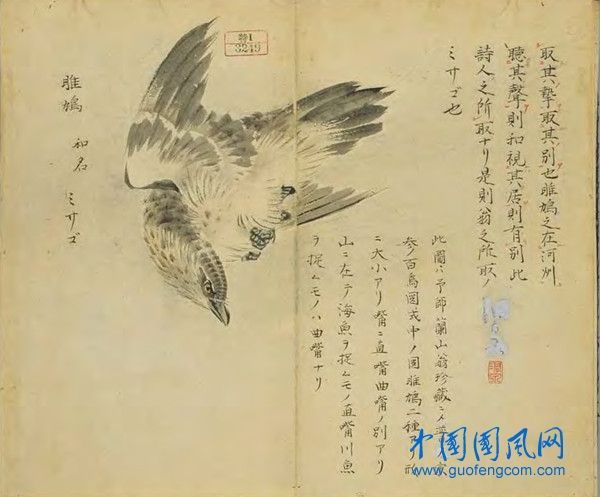 取其摯取其別也雎鳩之在河洲
聽其聲則和視其居則有別此
詩人之所取ナリ是則翁之所取ノ
ミサゴ也
此圖ハ予師蘭山翁珍藏ニ
参百鳥圖 中ノ圖雎鳩二種アリ形
ニ大小アリ嘴ニ直嘴曲嘴ノ別アリ
山ニ在テ海魚ヲ捉ムモノ直嘴川魚
ヲ捉ムモノハ曲嘴ナリ
特1
3249
雎鳩 和名 ミサゴ
中国國风网
www.guofengcom.com